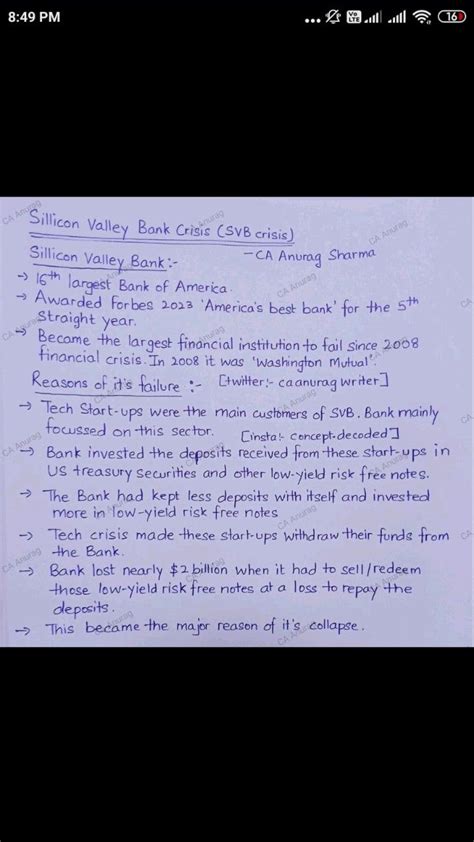 8:49 PM
... Vo LTE 16
Sillicon Valley Bank Crisis (SVB crisis)
- CA Anurag Sharma
Sillicon Valley Bank:-
→ 16th largest Bank of America.
→ Awarded Forbes 2023 'America's best bank' for the 5th
Straight year.
→ Became the largest financial institution to fail since 2008
financial crisis. In 2008 it was 'Washington Mutual'.
Reasons of it's failure :- [twitter:- caanuragwriter]
→ Tech Start-ups were the main customers of SVB. Bank mainly
focussed on this sector. [insta:- concept.decoded]
→ Bank invested the deposits received from these start-ups in
US treasury securities and other low-yield risk free notes.
→ The Bank had kept less deposits with itself and invested
more in low-yield risk free notes
→ Tech crisis made these start-ups withdraw their funds from
the Bank.
→ Bank lost nearly $2 billion when it had to sell/redeem
those low-yield risk free notes at a loss to repay the
deposits.
→ This became the major reason of it's collapse.
CA Anurag